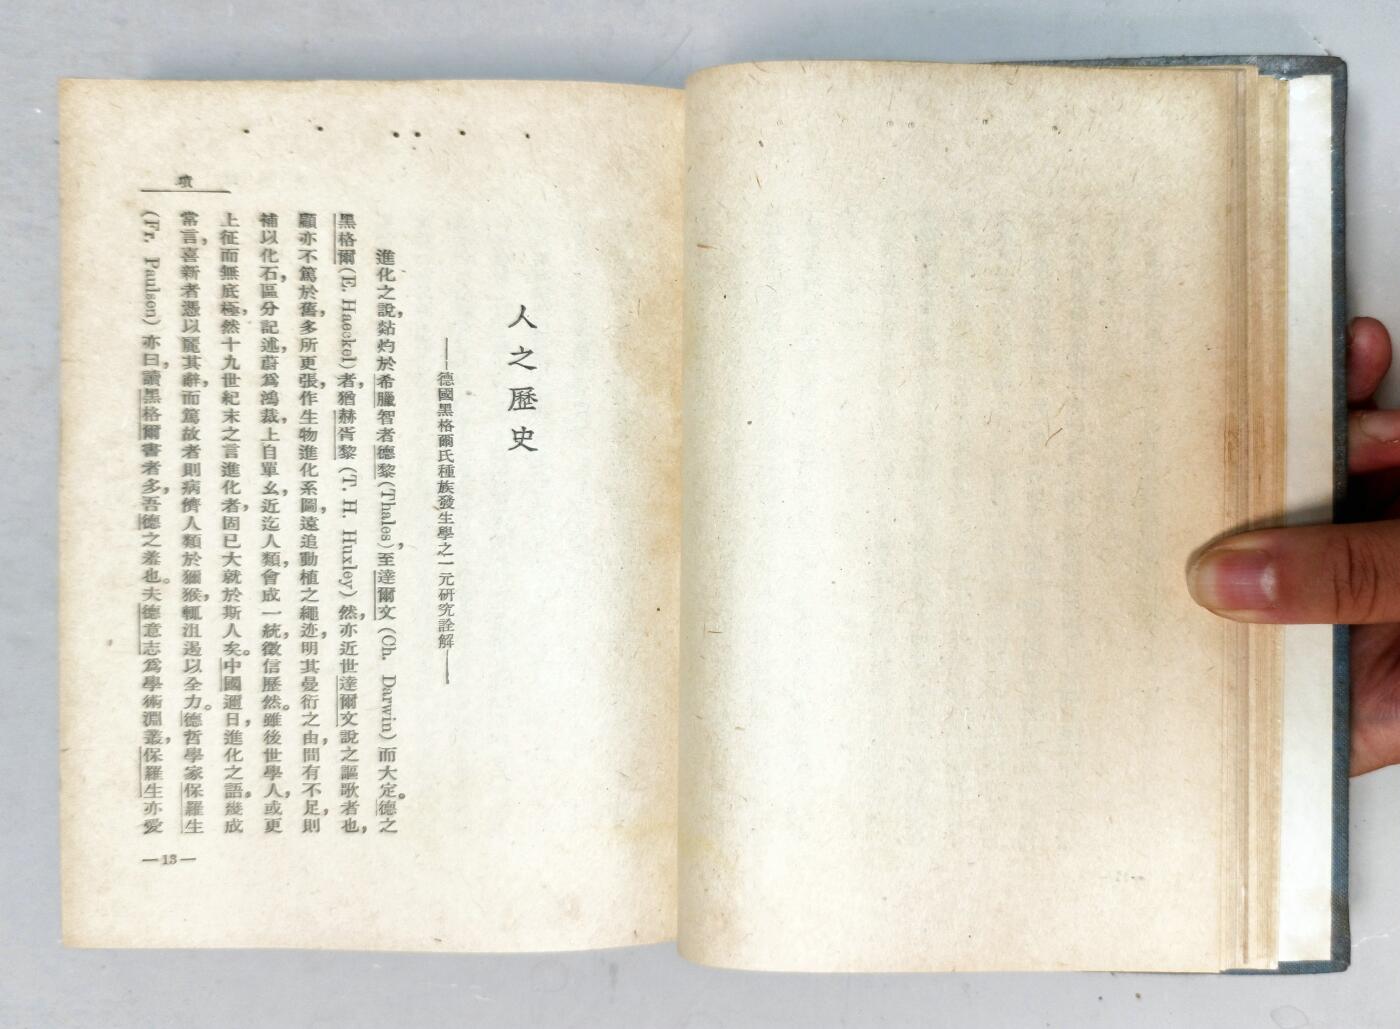 墳
人之歷史
——德國黑格爾氏種族發生學之一元研究詮解——
進化之說，煔灼於希臘智者德黎(Thales)，至達爾文(Ch. Darwin)而大定。德之
黑格爾(E. Haeckel)者，猶赫胥黎(T. H. Huxley)然，亦近世達爾文說之謳歌者也，
顧亦不篤於舊，多所更張，作生物進化系圖，遠追動植之繩迹，明其曼衍之由，間有不足，則
補以化石，區分記述，蔚爲鴻裁，上自單幺，近迄人類，會成一統，徵信歷然。雖後世學人，或更
上征而無底極，然十九世紀末之言進化者，固已大就於斯人矣。中國邇日，進化之語，幾成
常言，喜新者憑以麗其辭，而篤故者則病儕人類於獼猴，輒沮遏以全力。德哲學家保羅生
(Fr. Paulsen)亦曰，讀黑格爾書者多，吾德之羞也。夫德意志爲學術淵叢，保羅生亦愛
—13—